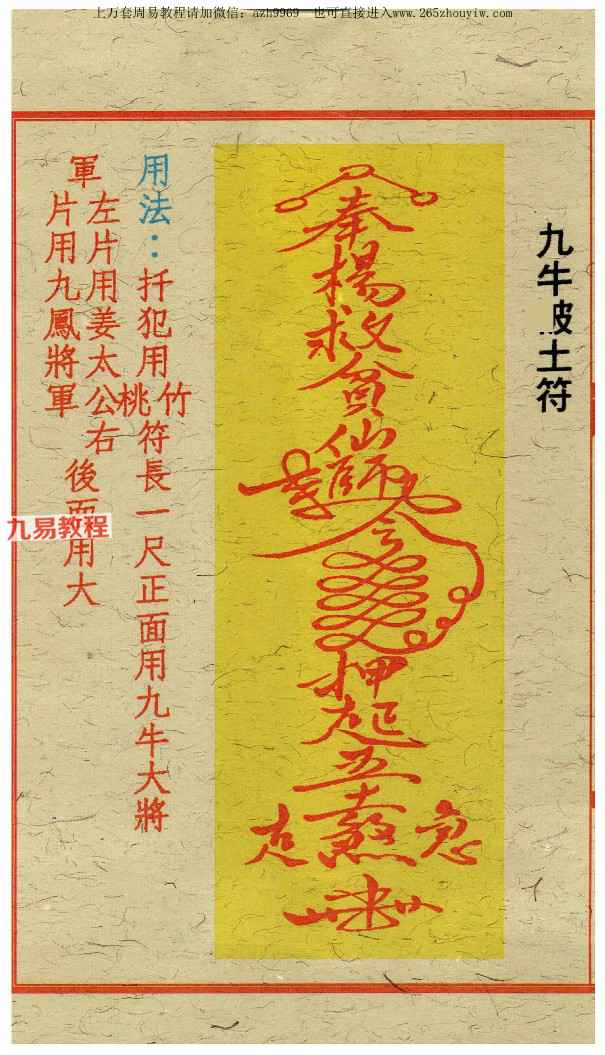 上万套周易教程请加微信：azh9969 也可直接进入www.265zhouyiw.com
九牛破土符
奉楊救貧仙師令
押起五煞
用法：扦犯用竹桃符長一尺正面用九牛大將
軍左片用姜太公右片用九鳳將軍後面用大
九易教程